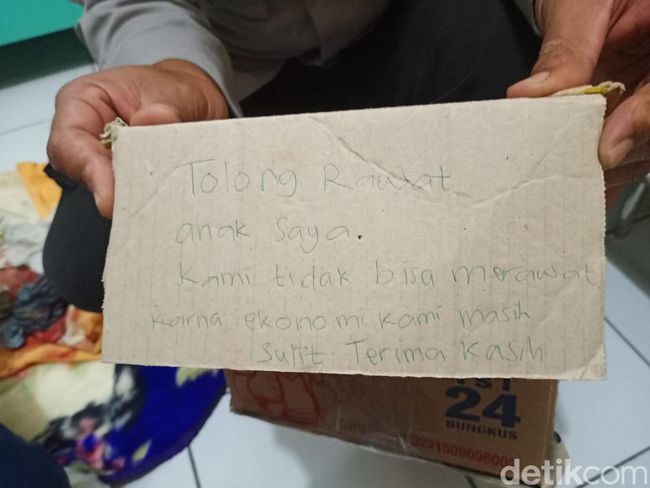 Tolong Rawat
anak saya.
Kami tidak bisa merawat
karna ekonomi kami masih
sulit Terima Kasih
ISI
24
BUNGKUS
detikcom